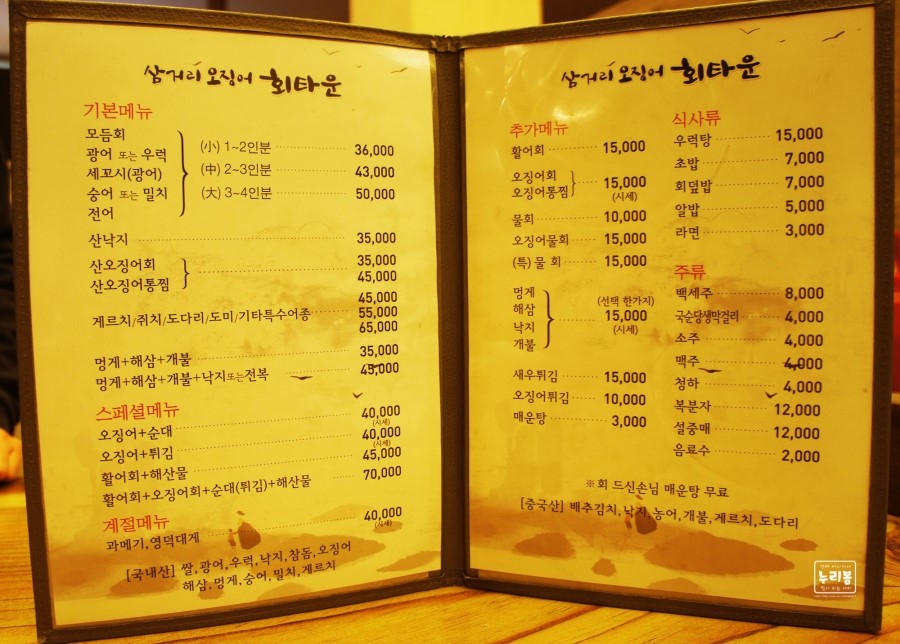 삼거리 오징어 회타운
기본메뉴
모듬회
광어 또는 우럭
세꼬시(광어)
숭어 또는 밀치
전어
(小) 1~2인분 36,000
(中) 2~3인분 43,000
(大) 3~4인분 50,000
산낙지 35,000
산오징어회 35,000
산오징어통찜 45,000
45,000
게르치/쥐치/도다리/도미/기타특수어종 55,000
65,000
멍게+해삼+개불 35,000
멍게+해삼+개불+낙지또는전복 45,000
스페셜메뉴
오징어+순대 40,000
(시세)
오징어+튀김 40,000
(시세)
활어회+해산물 45,000
활어회+오징어회+순대(튀김)+해산물 70,000
계절메뉴
과메기,영덕대게 40,000
(시세)
[국내산] 쌀,광어,우럭,낙지,참돔,오징어
해삼,멍게,숭어,밀치,게르치
삼거리 오징어 회타운
추가메뉴
활어회 15,000
오징어회
오징어통찜
15,000
(시세)
물회 10,000
오징어물회 15,000
(특) 물 회 15,000
멍게
해삼
낙지
개불
(선택 한가지)
15,000
(시세)
새우튀김 15,000
오징어튀김 10,000
매운탕 3,000
식사류
우럭탕 15,000
초밥 7,000
회덮밥 7,000
알밥 5,000
라면 3,000
주류
백세주 8,000
국순당생막걸리 4,000
소주 4,000
맥주 4,000
청하 4,000
복분자 12,000
설중매 12,000
음료수 2,000
※회 드신손님 매운탕 무료
[중국산] 배추김치,낙지,농어,개불,게르치,도다리
누리봄